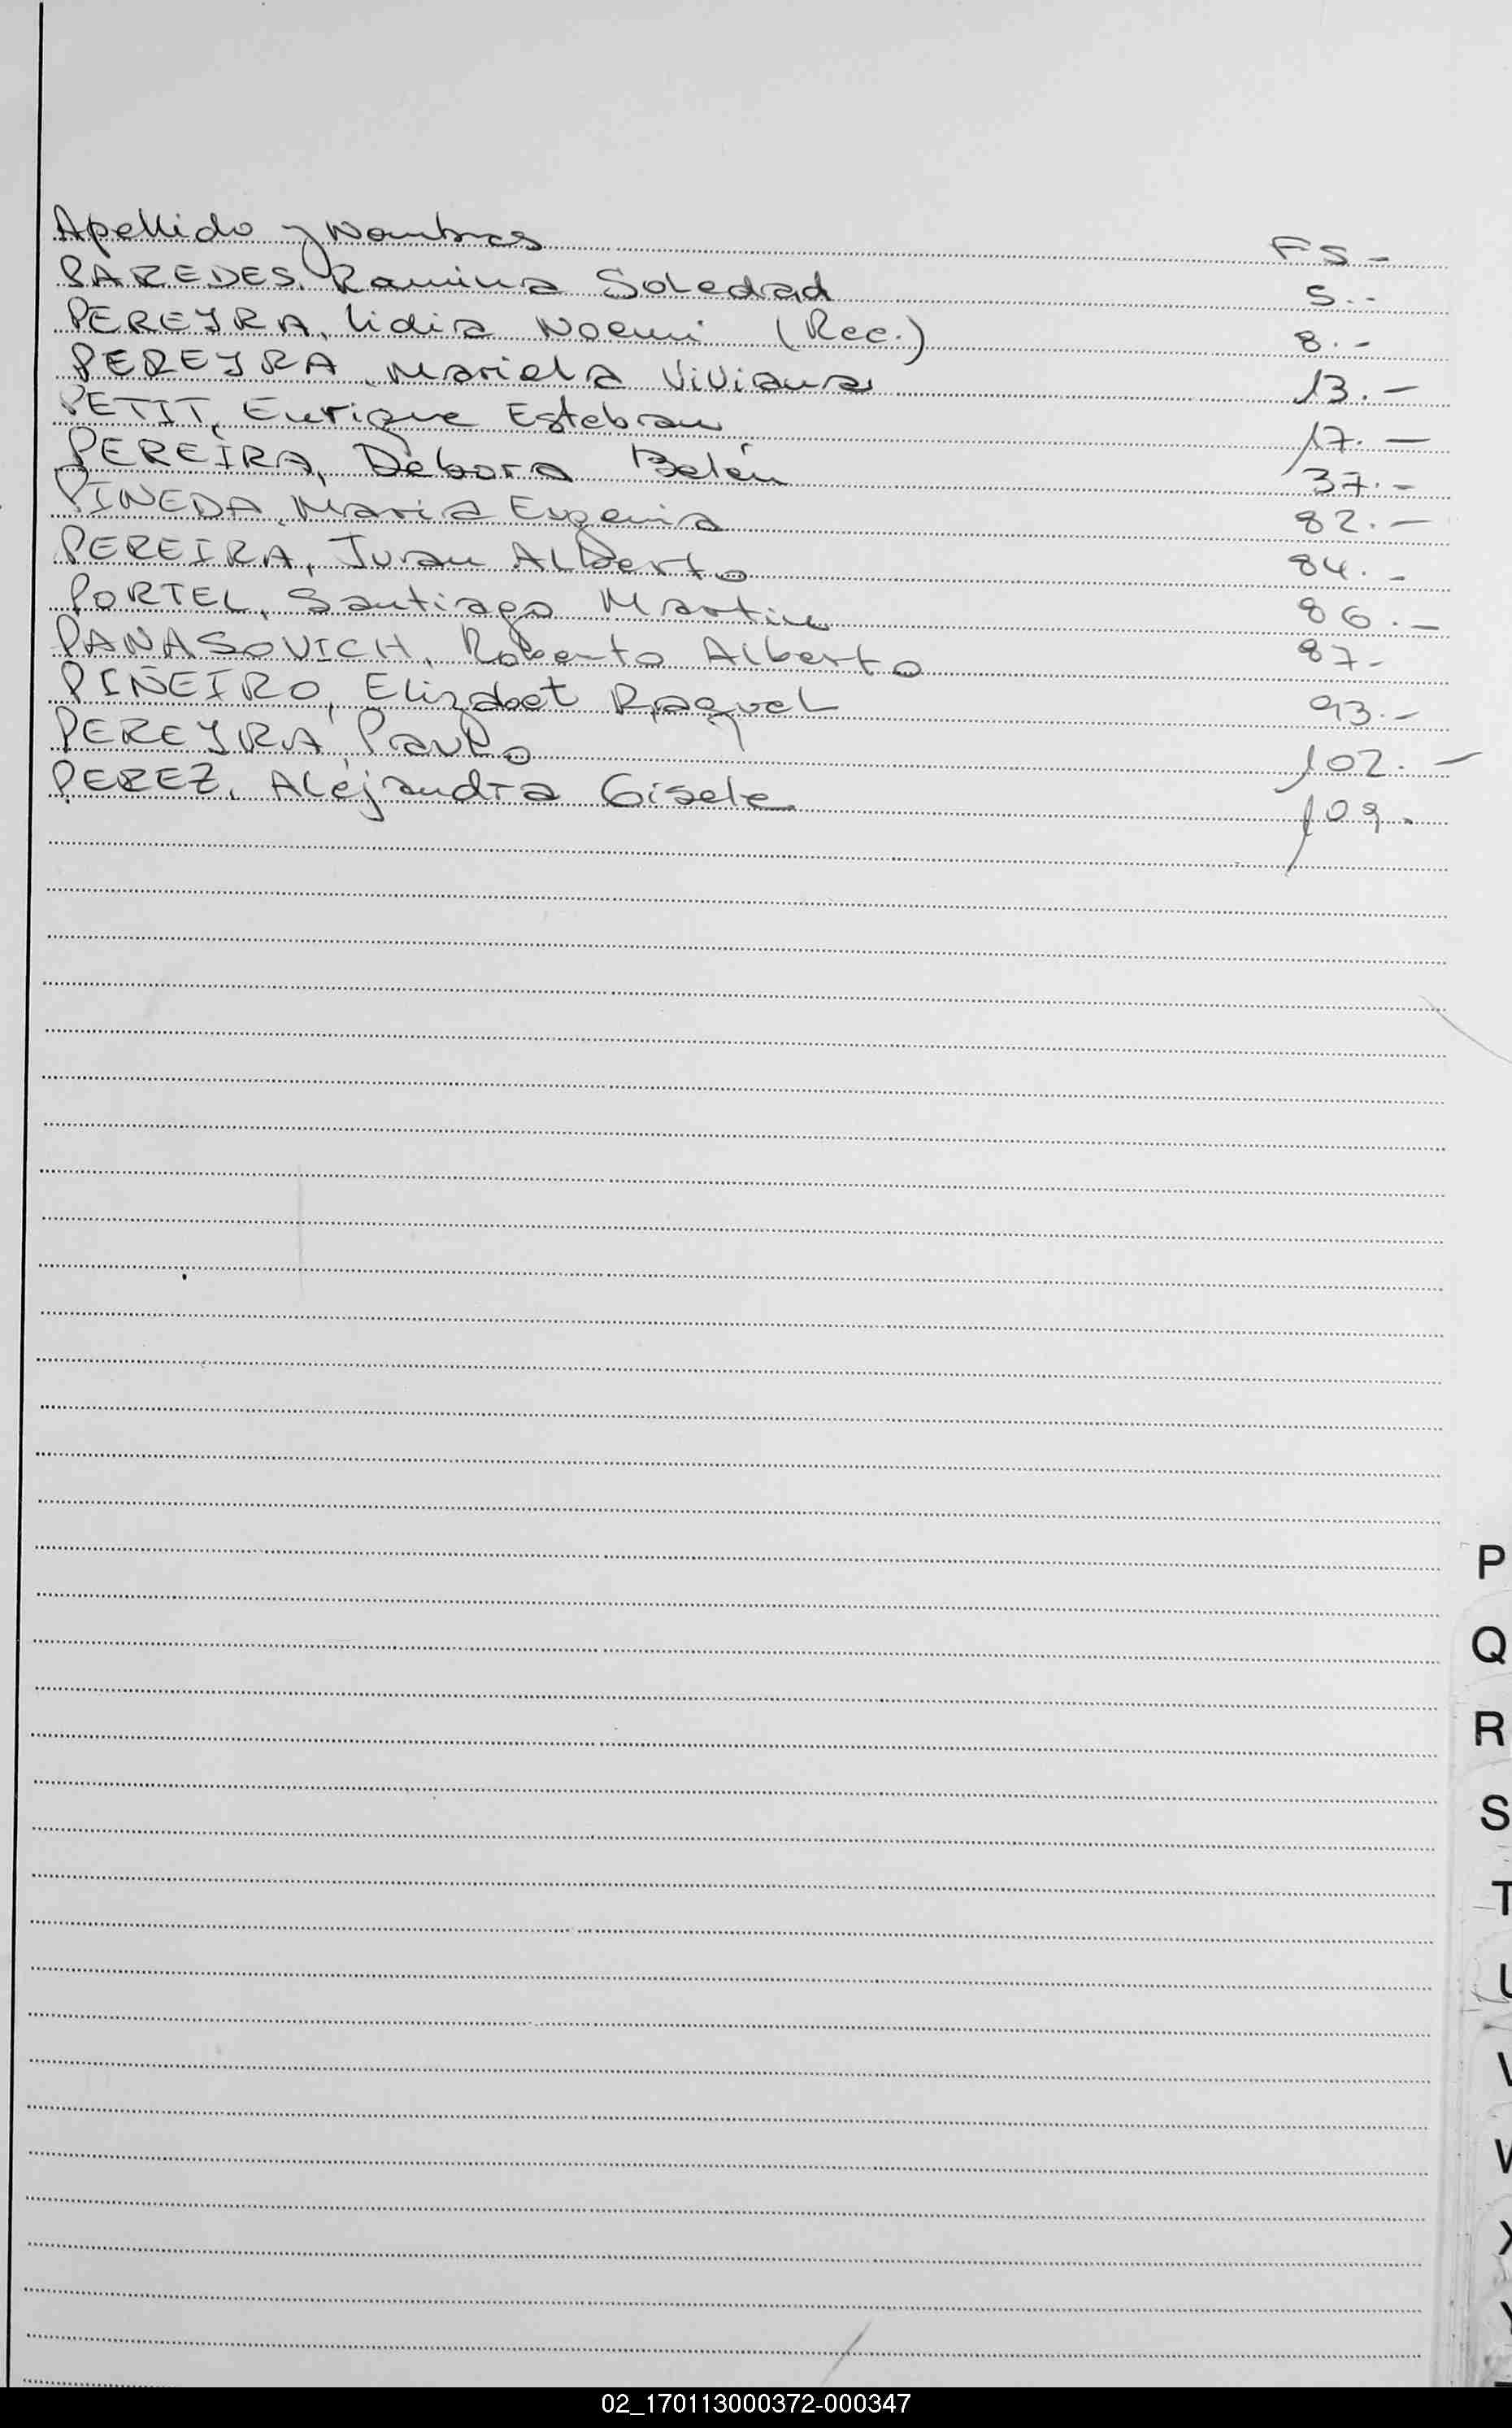 Apellido y Nombres FS-
PAREDES, Romina Soledad 5.-
PEREYRA, Lidia Noemi (Rec.) 8.-
PEREYRA, Mariela Viviana 13.-
PETIT, Enrique Esteban 17.-
PEREIRA, Débora Belén 37.-
PINEDA, Maria Eugenia 82.-
PEREIRA, Juan Alberto 84.-
PORTEL, Santiago Martin 86.-
PANASOVICH, Roberto Alberto 87-
PIÑEIRO, Elizabet Raquel 93.-
PEREYRA, Paulo 102.-
PEREZ, Alejandra Gisele 109.
P
Q
R
S
T
U
V
W
X
Y
02_170113000372-000347